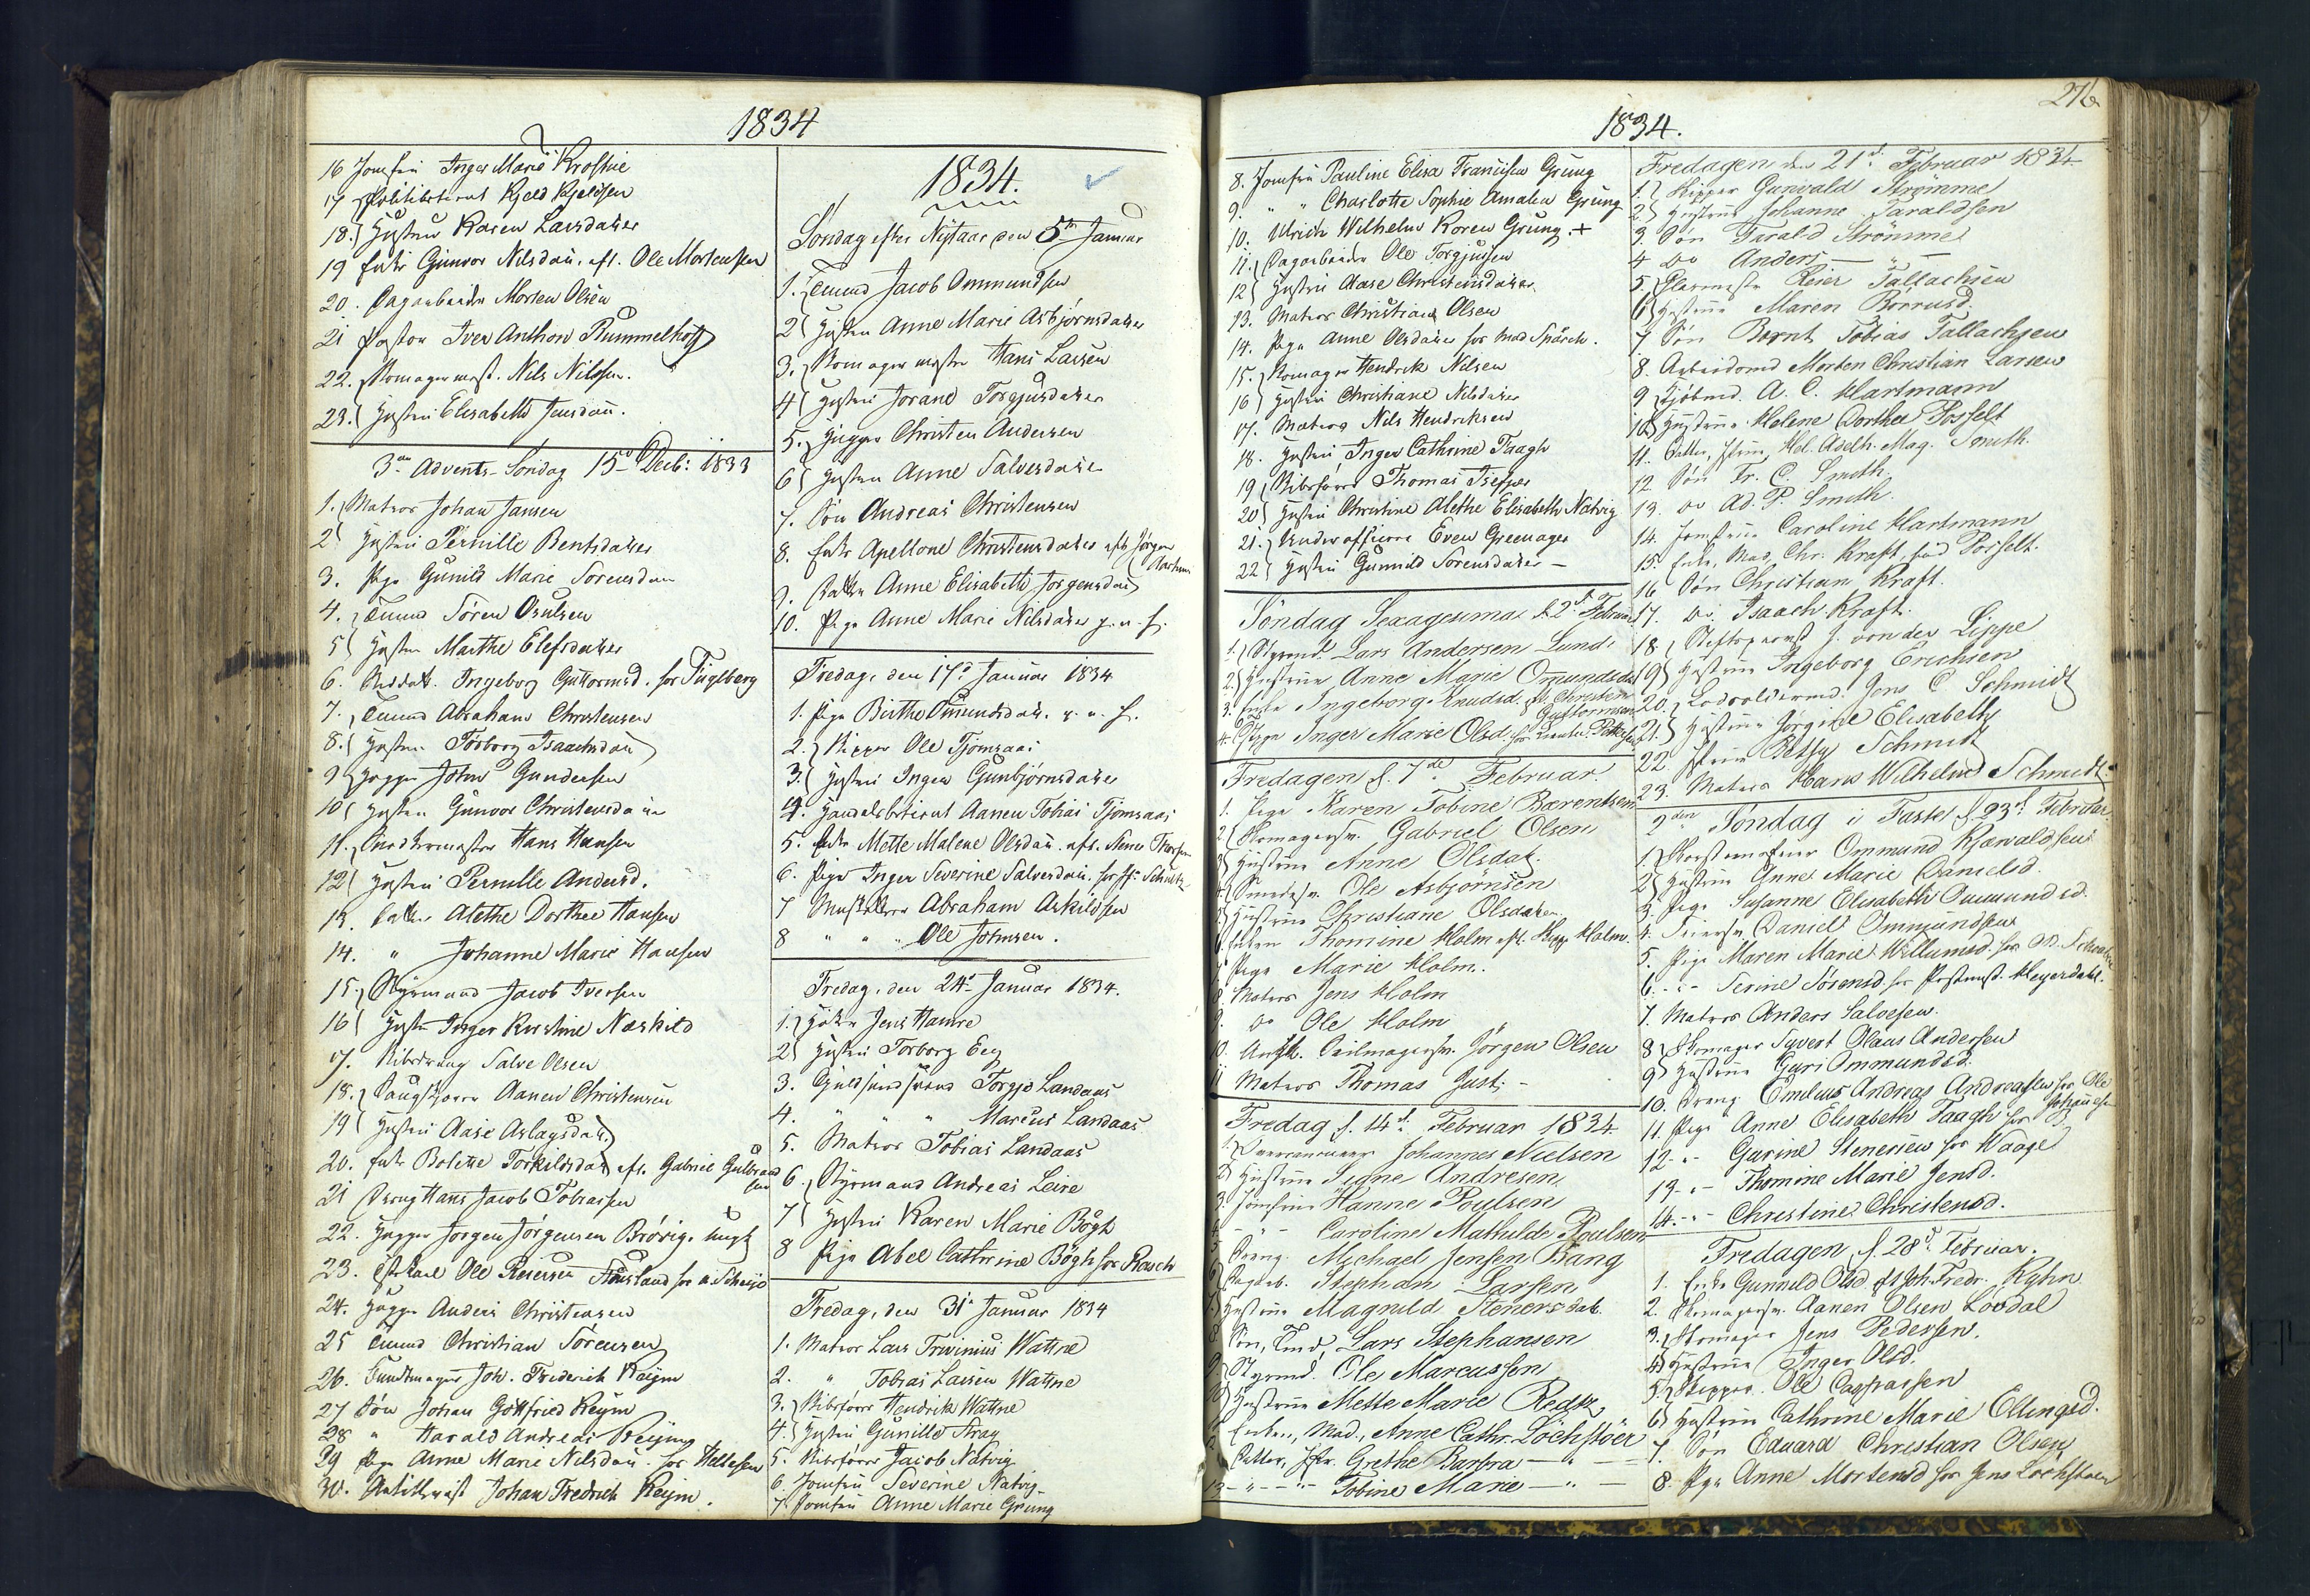 1834
16 Jomfru Inger Marie Krossne
17 Politibetient Kjeld Kjeldsen
18. Hustru Karen Larsdatter
19 Enke Gunvor Nilsdatr. aft. Ole Mortensen
20. Dagarbeider Morten Olsen
21 Pastor Iver Anthon Rummelhoff
22. Skomagermest. Nils Nilsen.
23. Hustru Elisabeth Jensdatr.
3die Advents-Søndag 15de Decb: 1833
1. Matros Johan Jansen
2 Hustru Pernille Bentsdatter
3. Pige Gunild Marie Sorensdatr
4. Tømmd Søren Osulsen
5 Hustru Marthe Elefsdatter
6. Ingeborg Guttormsd. hos Fuglberg
7. Tømmd Abraham Christensen
8. Hustru Torborg Isaachsdatr
9 John Gundersen
10 Hustru Gunvor Christensdatr
11. Snedkermester Hans Hansen
12 Hustru Pernille Andersd.
13. Datter Alethe Dorthee Hansen
14. " Johanne Marie Hansen
15. Styrmand Jacob Iversen
16 Hustr. Inger Kirstine Næskild
17. Salve Olsen
18. Aanen Christensen
19 Hustru Aase Aslagsdatr.
20. Enke Bolette Torkildsdatr aft. Gabriel Gulbrand
sen
21 Dreng Hans Jacob Tobiassen
22. Jørgen Jørgensen Brøvig.
23. Ole Reiersen
24. Anders Christensen
25 Tømmd Christian Sørensen
26. Joh. Friederich Reijm
27 Søn Johan Gottfried Reijm
28 " Harald Andreas Reijm
29 Pige Anne Marie Nilsdatr. hos
30. Johan Fredrich Reijm.
1834.
Søndag efter Nytaar den 5te Januar
1. Tømmd Jacob Ommundsen
2 Hustru Anne Marie Asbjørnsdatter
3. Skomagermester Hans Larsen
4 Hustru Jorand Torgjusdatter
5. Christen Andersen
6 Hustru Anne Salvesdatter
7. Søn Andreas Christensen
8. Enke Apellone Christensdatter aft. Jørgen
9. Datter Anne Elisabeth Jørgensdatr
10. Pige Anne Marie Nilsdatter
Fredag, den 17de Januar 1834
1. Pige Birthe Omundsdatr.
2. Skipper Ole Tjomsaas
3. Hustru Inger Gunbjørnsdatter
4. Handelsbetient Aanen Tobias Tjomsaas
5. Enke Mette Malene Olsdatr. aft.
6. Pige Inger Severine Salvesdatr. hos
7 Abraham Askildsen
8 " " " Ole Johnsen.
Fredag, den 24de Januar 1834.
1. Jens Hamre
2 Hustru Torborg Eeg
3. Guldsmedsvend Torgjs Landaas
4. " " " Marcus Landaas
5. Matros Tobias Landaas
6. Styrmand Andreas Leire
7 Hustru Karen Marie Bögh
8 Pige Abel Cathrine Bögh hos Rasch
Fredag, den 31te Januar 1834
1. Matros Lars Wattne
2. " Tobias Larsen Wattne
3. Hendrik Wattne
4. Hustru Gunilld Aray
5. Jacob Natvig
6. Jomfru Severine Natvig
7. Jomfru Anne Marie Grung
276
1834.
8. Jomfru Pauline Elisa Francisca Grung
9. " " Charlotte Sophie Amalia Grung
10. Ulrich Wilhelm Koren Grung. +
11. Dagarbeider Ole Torgjusen
12 Hustru Aase Christensdatter
13. Matros Christian Olsen
14. Pige Anne Olsdatter hos Mad Spärck.
15. Skomager Hendrik Nilsen
16 Hustru Christiane Nilsdatter
17. Matros Nils Hendriksen
18. Hustru Inger Cathrine Faagh
19 Thomas
20 Hustru Christine Alethe Elisabeth Natvig
21. Underofficeer Even Greenager
22 Hustru Gunnild Sorensdatter
Søndag Sexagesima d. 2den Februar
1. Styrmd. Lars Andersen Lund
2. Hustrue Anne Marie Omundsdatr
3. Enke Ingeborg Knudsd. aft. Christen
Guttormsen
4. Pige Inger Marie Olsd. hos
Fredagen d. 7de Februar.
1. Pige Karen Tobine Bærentsen
2 Skomagersv. Gabriel Olsen
3 Hustrue Anne Olsdat.
4. Smedesv. Ole Asbjörnsen
5 Hustrue Christiane Olsdatter
6 Enken Thomine Holm aft. Skipp. Holm.
7 Pige Marie Holm.
8. Matros Jens Holm
9. do Ole Holm
10. Jørgen Olsen
11 Matros Thomas Just.
Fredag d. 14de Februar 1834
1. Johannes Nielsen
2 Hustrue Signe Andresen
3. Jomfrue Hanne Poulsen
4. Caroline Mathilde Poulsen
5. Dreng Michael Jensen Bang
6. Dagarb. Stephan Larsen
7. Hustrue Magnild Stenersdat.
8. Søn, Tømd, Lars Stephansen
9. Styrmd. Ole Marcussen
10 Hustrue Mette Marie Redtz
11. Enken, Mad, Anne Cathr. Löchstöer
12 Datter, Jfr. Grethe Barbra — " —
13 — " — " Tobine Marie — " —
Fredagen den 21de Februar 1834
1. Skipper Gunvald Strömme
2. Hustrue Johanne Taraldsen
3. Søn Tarald Strömme
4 do Anders — " —
5. Glarmester Reier Tallachsen
6 Hustrue Maren
7 Søn Bernt Tobias Tallachsen
8. Arbeidsmd Morten Christian Larsen
9 Kjöbmd. A. C. Hartmann
10 Hustrue Helene Dorthea Posselt
11. Datter, Hel. Adelh. Mag. Smith.
12. Søn Fr. C. Smith.
13. do Ad. P. Smith.
14. Jomfrue Caroline Hartmann
15. Enke, Mad, Chr. Kraft, fød Posselt.
16 Søn Christian Kraft.
17. do. Isaach Kraft.
18. Stiftsprovst J. von der Lippe
19 Hustrue Ingeborg Erichsen
20. Jens C Schmidt
21. Hustrue Jörgine Elisabeth
22. Betsy Schmidt
23. Matros Hans Wilhelm Schmidt.
2den Søndag i Faste d. 23de Februar
1. Ommund Kjævaldsen
2 Hustrue Anne Marie Danielsd.
3. Pige Susanne Elisabeth Ommundsd.
4. Daniel Ommundsen
5. Pige Maren Marie Willumsd. hos
6. - " - Serine Sörensd. hos Postmest. Heyerdahl.
7. Matros Anders Salvesen.
8 Skomager Syvert Olaus Andersen
9 Hustrue Guri Ommundsd.
10. Dreng Emilius Andreas Andreassen hos Ole
Johannesen
11. Pige Anne Elisabeth Faagh hos
12 - " - Gurine Stenersen hos Waage
13 - " - Thomine Marie Jensd.
14. - " - Christine Christensd.
Fredagen, d. 28de Februar.
1. Enke Gunnild Olsd. aft Joh. Fredr. Kyhn
2. Skomagersv. Aanen Olsen Lovdal
3. Skomager Jens Pedersen.
4 Hustrue Inger Olsd.
5. Skipper Ole Casparsen
6 Hustrue Cathrine Marie Ellingsd.
7. Søn Eduard Christian Olsen
8. Pige Anne Mortensd hos Jens Lochstöer